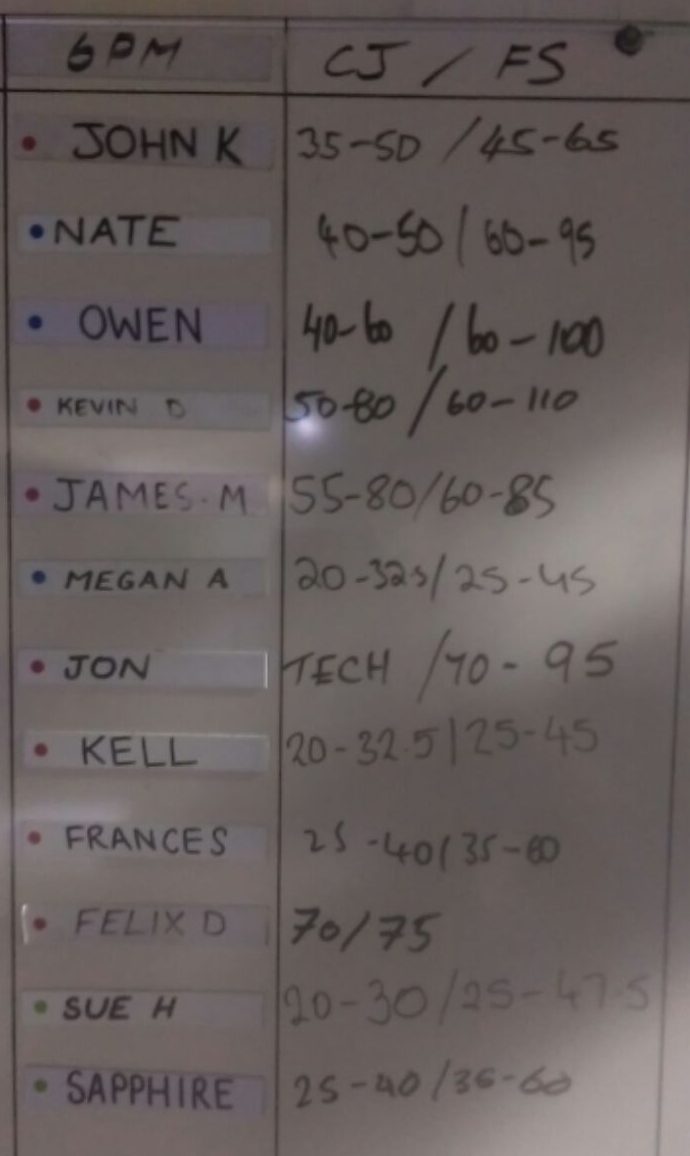 6PM CJ / FS
• JOHN K 35-50 / 45-65
• NATE 40-50 / 60-95
• OWEN 40-60 / 60-100
• KEVIN D 50-80 / 60-110
• JAMES.M 55-80/60-85
• MEGAN A 20-325/25-45
• JON TECH /70-95
• KELL 20-32.5/25-45
• FRANCES 25-40/35-60
• FELIX D 70/75
• SUE H 20-30/25-47.5
• SAPPHIRE 25-40/35-60